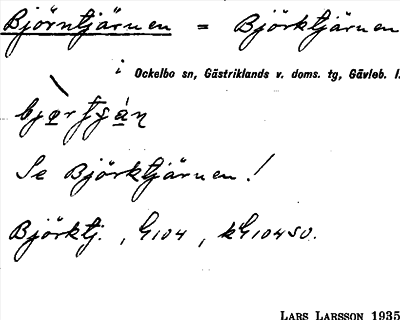 Björntjärnen = Björktjärnen
i Ockelbo sn, Gästriklands v. doms. tg, Gävleb. l.
Se Björktjärnen!
Björktj.
LARS LARSSON 1935